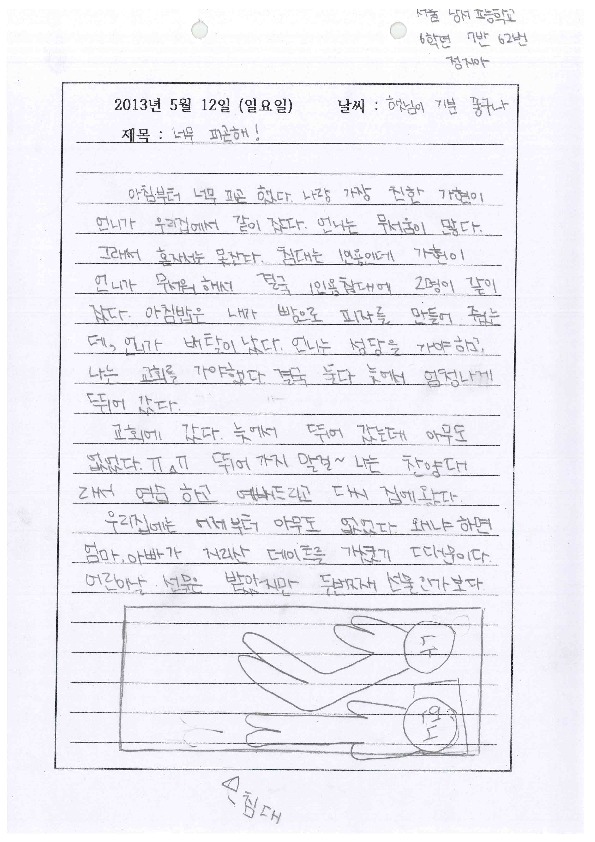 서울 남서초등학교
6학년 7반 62번
정지아
2013년 5월 12일 (일요일) 날씨 : 햇님이 기분 좋구나
제목 : 너무 피곤해!
아침부터 너무 피곤 했다. 나랑 가장 친한 가현이
언니가 우리집에서 같이 잤다. 언니는 무서움이 많다.
그래서 혼자서는 못잔다. 침대는 1인용인데 가현이
언니가 무서워 해서 결국 1인용침대에 2명이 같이
잤다. 아침밥은 내가 빵으로 피자를 만들어 줬는
데, 언니가 배탁이 났다. 언니는 성당을 가야하고,
나는 교회를 가야했다 결국 둘다 늦어서 엄청나게
뛰어 갔다.
교회에 갔다. 늦어서 뛰어 갔는데 아무도
없었다. ㅠㅅㅠ 뛰어가지 말걸~ 나는 찬양대
라서 연습 하고 예배드리고 다시 집에 왔다.
우리집에는 어제부터 아무도 없었다 왜냐 하면
엄마, 아빠가 지리산 데이트를 때문이다.
어린이날 선물은 받았지만 두번째 선물인가보다
언니
침대